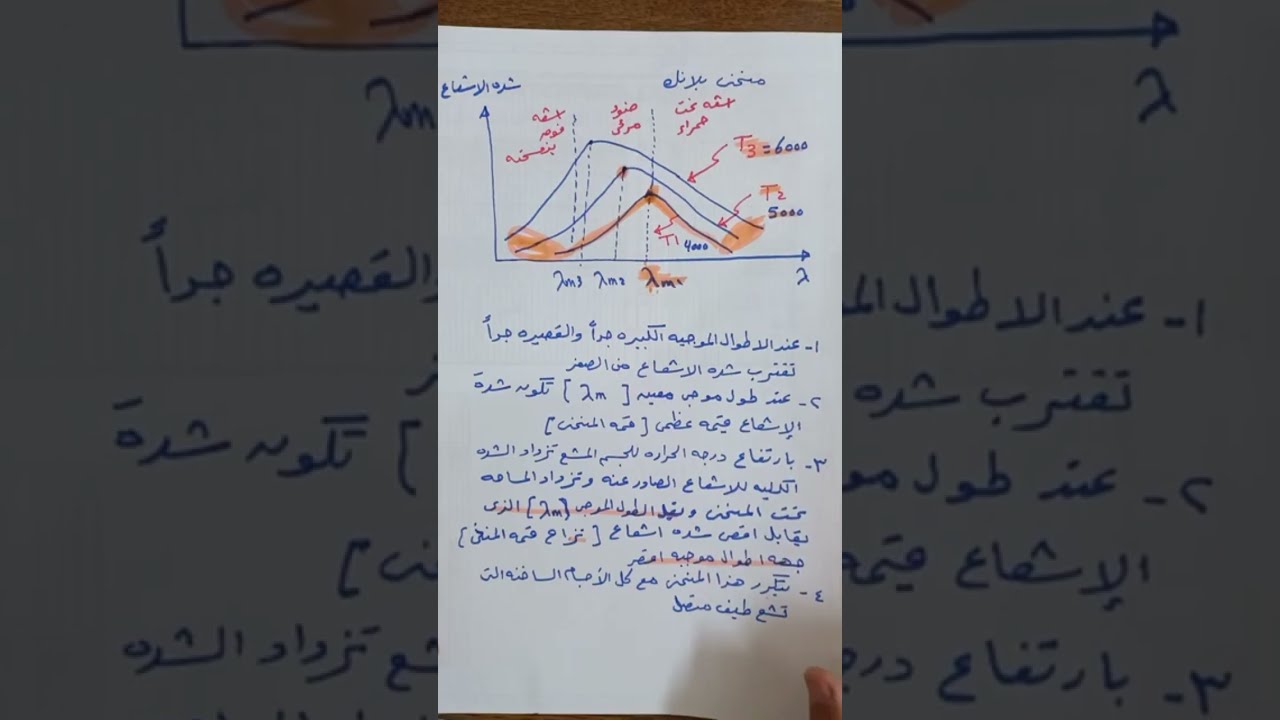 منحنى بلانك
شده الاشعاع
اشعه فوق بنفسجيه
ضوء مرئى
اشعه تحت حمراء
T3 = 6000
T2
5000
T1 4000
λm3 λm2 λm1
λ
١- عند الاطوال الموجيه الكبيره جداً والقصيره جداً
تقترب شده الاشعاع من الصفر
٢- عند طول موجى معين [ λm ] تكون شدة
الإشعاع قيمه عظمى [ قمه المنحنى ]
٣- بارتفاع درجه الحراره للجسم المشع تزداد الشده
الكليه للاشعاع الصادر عنه وتزداد المساحه
تحت المنحنى ويقل الطول الموجى (λm) الذى
يقابل اقصى شده اشعاع [ تزاح قمه المنحنى ]
جهه اطوال موجيه اقصر
٤- يتكرر هذا المنحنى مع كل الأجسام الساخنه التى
تشع طيف متصل